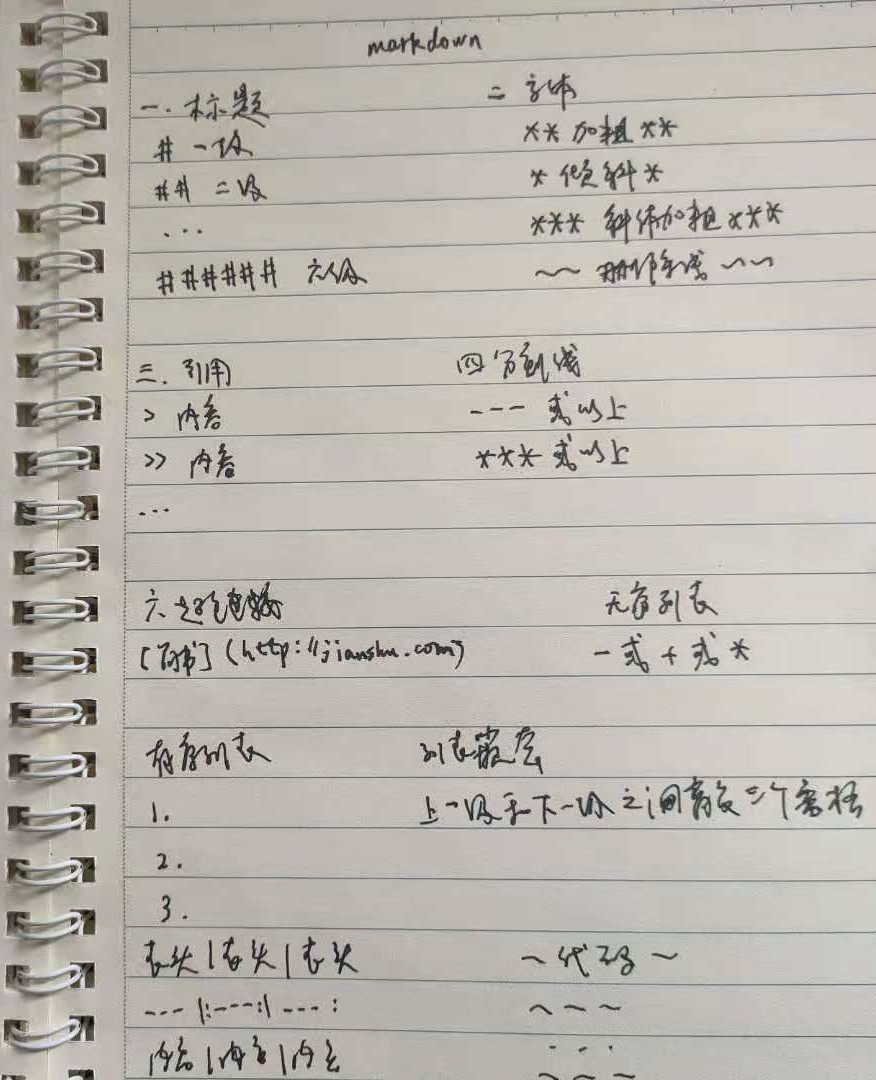 markdown
一. 标题
# 一级
## 二级
...
###### 六级
二 字体
** 加粗 **
* 倾斜 *
*** 斜体加粗 ***
~~ 删除线 ~~
三. 引用
> 内容
>> 内容
...
四 分割线
--- 或以上
*** 或以上
六 超链接
[简书] (http://jianshu.com)
无序列表
- 或 + 或 *
有序列表
1.
2.
3.
列表嵌套
上一级和下一级之间敲三个空格
表头 | 表头 | 表头
--- |:---:| ---:
内容 | 内容 | 内容
~ 代码 ~
~ ~ ~
...
~ ~ ~